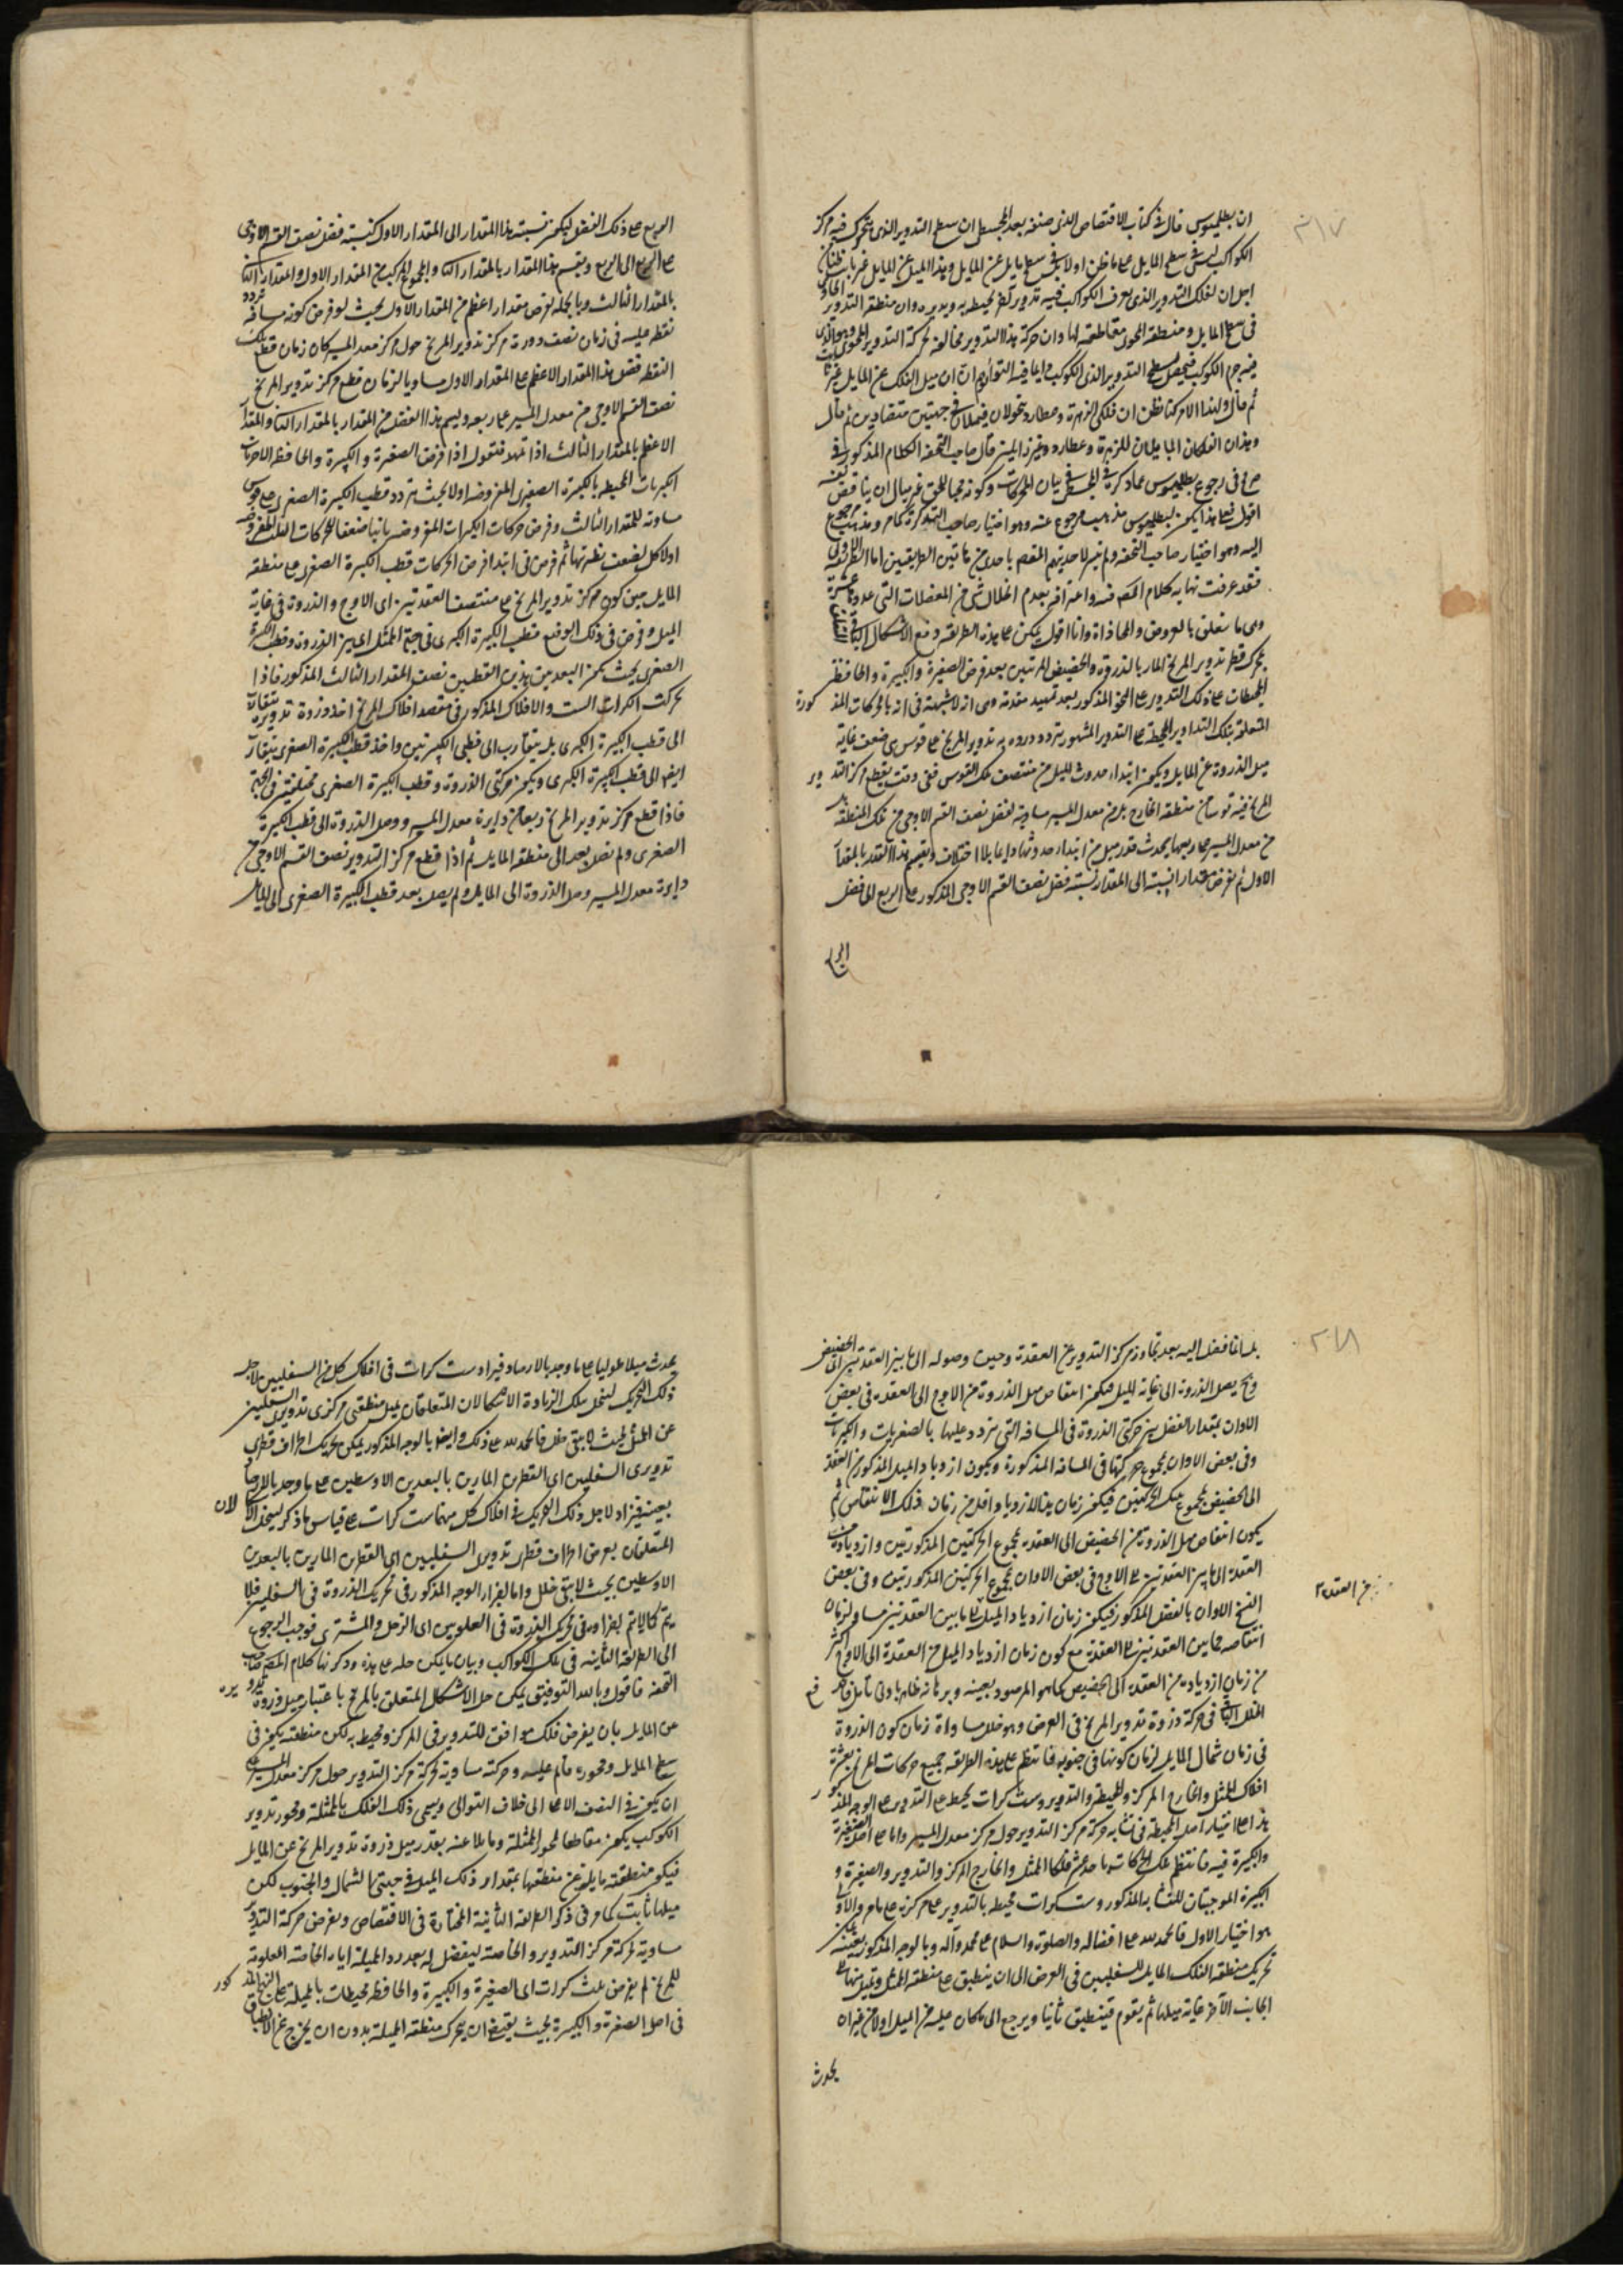 ان بطلميوس قال في كتاب الاقتصاص الذي صنفه بعد المجسطي ان سطح التدوير الذي يتحرك فيه مركز
الكواكب ليس في سطح المايل على ما ظن اولا بل في سطح مايل عن المايل وهذا الميل عن المايل غير ثابت
لفلك التدوير الذي يعرف الكواكب فيه تدوير آخر يحيط به ويديره وان منطقة التدوير الحاوي
في سطح المايل ومنطقة المحوى مقاطعة لها وان حركة هذا التدوير مخالفة لحركة التدوير المحوى وهو الذي
فيه جرم الكوكب
ثم قال ولهذا الامر كنا نظن ان فلكي الزهرة وعطارد يتحولان فيميلان في جهتين متضادتين ثم قال
وهذان الفلكان المايلان للزهرة وعطارد قال صاحب التحفة الكلام المذكور في
في رجوع بطلميوس عما ذكره في المجسطي في بيان المحركات
اقول فعلى هذا يكون لبطلميوس مذهب مرجوع عنه وهو اختيار صاحب التذكرة كما مر ومذهب مرجوع
اليه وهو اختيار صاحب التحفة باحدى هاتين الطريقتين اما الطريقة الاولى
فقد عرفت نهاية كلام المصنف فيه واعترافه بعدم انحلال شيء من المعضلات التي
وهي ما يتعلق بالعروض والمحاذاة وانا اقول يمكن على هذه الطريقة دفع الاشكال
بحركة قطر تدوير المريخ المار بالذروة والحضيض المرئيين بعد فرض الصغيرة والكبيرة والحافظة
المحيطات على ذلك التدوير على النحو المذكور بعد تمهيد مقدمة وهي انه لا شبهة في انه بالحركات المذكورة
المتعلقة بتلك التداوير المحيطة على التدوير المشهور تردد ذروة تدوير المريخ على قوس هي ضعف غاية
ميل الذروة عن المايل ويكون ابتداء حدوث الميل من منتصف تلك القوس ففي وقت يقطع مركز التدوير
المريخ فيه قوسا من منطقة الخارج بل من معدل المسير مساوية لفضل نصف القسم الاوجي من تلك المنطقة بل
من معدل المسير على ربعها يحدث قدر ميل من ابتداء حدوثها دايما بلا اختلاف ونسم هذا القدر بالمقدار
الاول ثم نفرض مقدارا نسبته الى المقدار نسبة فضل نصف القسم الاوجي المذكور على الربع الى فضل
الربع على ذلك الفضل ليكون نسبة هذا المقدار الى المقدار الاول كنسبة فضل نصف القسم الاوجي
على الربع الى الربع ونسم هذا المقدار بالمقدار الثاني والمجموع المركب من المقدار الاول والمقدار الثاني
بالمقدار الثالث وبالجملة نفرض مقدارا اعظم من المقدار الاول بحيث لو فرض كونه مسافة تردد
نقطة عليه في زمان نصف دورة مركز تدوير المريخ حول مركز معدل المسير كان زمان قطع تلك
النقطة فضل هذا المقدار الاعظم على المقدار الاول مساويا لزمان قطع مركز تدوير المريخ
نصف القسم الاوجي من معدل المسير على ربعه وليسم هذا الفضل من المقدار بالمقدار الثاني والمقدار
الاعظم بالمقدار الثالث اذا تمهد فنقول اذا فرض الصغيرة والكبيرة والحافظة الاخريات
الكبريات المحيطة بالكبيرة الصغرى المفروضة اولا بحيث يتردد قطب الكبيرة الصغرى على قوس
مساوية للمقدار الثالث وفرض حركات الكبريات المفروضة ثانيا ضعفا لحركات الثلث المفروضة
اولا كل لضعف نظيرتها ثم فرض في ابتداء فرض الحركات قطب الكبيرة الصغرى على منطقة
المايل حين كون مركز تدوير المريخ على منتصف العقدتين اي الاوج والذروة في غاية
الميل وفرض في ذلك الوضع قطب الكبيرة الكبرى في جهة الممثل اي بين الذروة وقطب الكبيرة
الصغرى بحيث يكون البعد بين هذين القطبين نصف المقدار الثالث المذكور فاذا
تحركت الكرات الست والافلاك المذكورة في مقصد افلاك المريخ اخذ ذروة تدويره يتقارب
الى قطب الكبيرة الكبرى بل يتقارب الى قطبي الكبيرتين واخذ قطب الكبيرة الصغرى يتقارب
ايضا الى قطب الكبيرة الكبرى ويكون حركتي الذروة وقطب الكبيرة الصغرى مختلفتين في الجهة
فاذا قطع مركز تدوير المريخ ربعا من دايرة معدل المسير ووصل الذروة الى قطب الكبيرة
الصغرى ولم تصل بعد الى منطقة المايل ثم اذا قطع مركز التدوير نصف القسم الاوجي من
دايرة معدل المسير وصل الذروة الى المايل ولم يصل بعد قطب الكبيرة الصغرى الى المايل
بل انما فضل اليه بعد تجاوز مركز التدوير عن العقدة وحين وصوله الى ما بين العقدتين اي الحضيض
وح يصل الذروة الى غاية الميل فيكون انتقاص ميل الذروة من الاوج الى العقدة في بعض
الاوان بمقدار الفضل بين حركتي الذروة في المسافة التي تتردد عليها بالصغريات والكبريات
وفي بعض الاوان بمجموع حركتها في المسافة المذكورة ويكون ازدياد الميل المذكور من العقدة
الى الحضيض بمجموع تلك الحركتين فيكون زمان هذا الازدياد اقل من زمان ذلك الانتقاص ثم
يكون انتقاص ميل الذروة من الحضيض الى العقدة بمجموع الحركتين المذكورتين وازدياده من
العقدة الى ما بين العقدتين على الاوج في بعض الاوان بمجموع الحركتين المذكورتين وفي بعض
الاوان بالفضل المذكور فيكون زمان ازدياد الميل الى ما بين العقدتين مساويا لزمان
انتقاصه مما بين العقدتين الى العقدة مع كون زمان ازدياد الميل من العقدة الى الاوج اكثر
من زمان ازدياده من العقدة الى الحضيض كما هو المرصود بعينه وبرهانه ظاهر بادنى تامل
في حركة ذروة تدوير المريخ في العرض وهو خلل مساواة زمان كون الذروة
في زمان شمال المايل لزمان كونها في جنوبه فانتظم على هذه الطريقة جميع حركات المريخ بعشرة
افلاك الممثل والخارج المركز والمحيطة والتدوير وست كرات يحيط على التدوير على الوجه المذكور
هذا على اختيار اصل المحيطة في تشابه حركة مركز التدوير حول مركز معدل المسير واما على اصل الصغيرة
والكبيرة فيه فانتظم تلك الحركات باحد عشر فلكا الممثل والخارج المركز والتدوير والصغيرة و
الكبيرة الموجبتان للتشابه المذكور وست كرات محيطة بالتدوير على مركزه على ما مر والاولى
هو اختيار الاول فالحمد لله على افضاله والصلوة والسلام على محمد وآله وبالوجه المذكور بعينه يمكن
تحريك منطقة الفلك المايل للسفليين في العرض الى ان ينطبق على منطقة الممثل ويميل منها الى
الجانب الآخر غاية ميلها ثم يقوم فينطبق ثانيا ويرجع الى ما كان عليه من الميل اولا من غير ان
يحدث
من العقدة
يحدث ميلا طوليا على ما وجد بالارصاد فيزاد ست كرات في افلاك كل من السفليين لاجل
ذلك التحريك لينحل بتلك الزيادة الاشكالان المتعلقان بميل منطقتي مركزي تدويري السفليين
عن الممثل بحيث لا يبقى خلل فالحمد لله على ذلك وايضا بالوجه المذكور يمكن تحريك اطراف قطري
تدويري السفليين اي القطرين المارين بالبعدين الاوسطين على ما وجد بالارصاد
بعينه فيزاد لاجل ذلك التحريك في افلاك كل منهما ست كرات على قياس ما ذكر لينحل الاشكالان
المتعلقان بعرض اطراف قطري تدويري السفليين اي القطرين المارين بالبعدين
الاوسطين بحيث لا يبقى خلل واما الوجه المذكور في تحريك الذروة في السفليين فلا
يتم كما لا يتم في تحريك الذروة في العلويين اي الزحل والمشتري فوجب الرجوع
الى الطريقة الثانية في تلك الكواكب وبيان ما يمكن حله على هذه وذكر نهاية كلام المصنف صاحب
التحفة فاقول وبالله التوفيق يمكن حل الاشكال المتعلق بالمريخ باعتبار ميل ذروة تدويره
عن المايل بان يفرض فلك موافق للتدوير في المركز ومحيط به لكن منطقته يكون في
سطح المايل ومحوره قائم عليه وحركته مساوية لحركة مركز التدوير حول مركز معدل المسير على
ان يكون في النصف الاعلى الى خلاف التوالي وسمي ذلك الفلك بالممثلة ومحور تدوير
الكوكب يكون مقاطعا لمحور الممثلة ومايلا عنه بقدر ميل ذروة تدوير المريخ عن المايل
فيكون منطقته مايلة عن منطقتها بمقدار ذلك الميل في جهتي الشمال والجنوب لكن
ميلها ثابت كما مر في ذكر الطريقة الثانية المختارة في الاقتصاص ويفرض حركة التدوير
مساوية لحركة مركز التدوير والخاصة ليفضل له بعد رد المميلة اياه الخاصة المعلومة
للمريخ ثم يفرض ثلث كرات اي الصغيرة والكبيرة والحافظة محيطات بالمميلة على النهج المذكور
في اصل الصغيرة والكبيرة بحيث يقتضي ان يتحرك منطقة المميلة بدون ان يخرج عن الانطباق